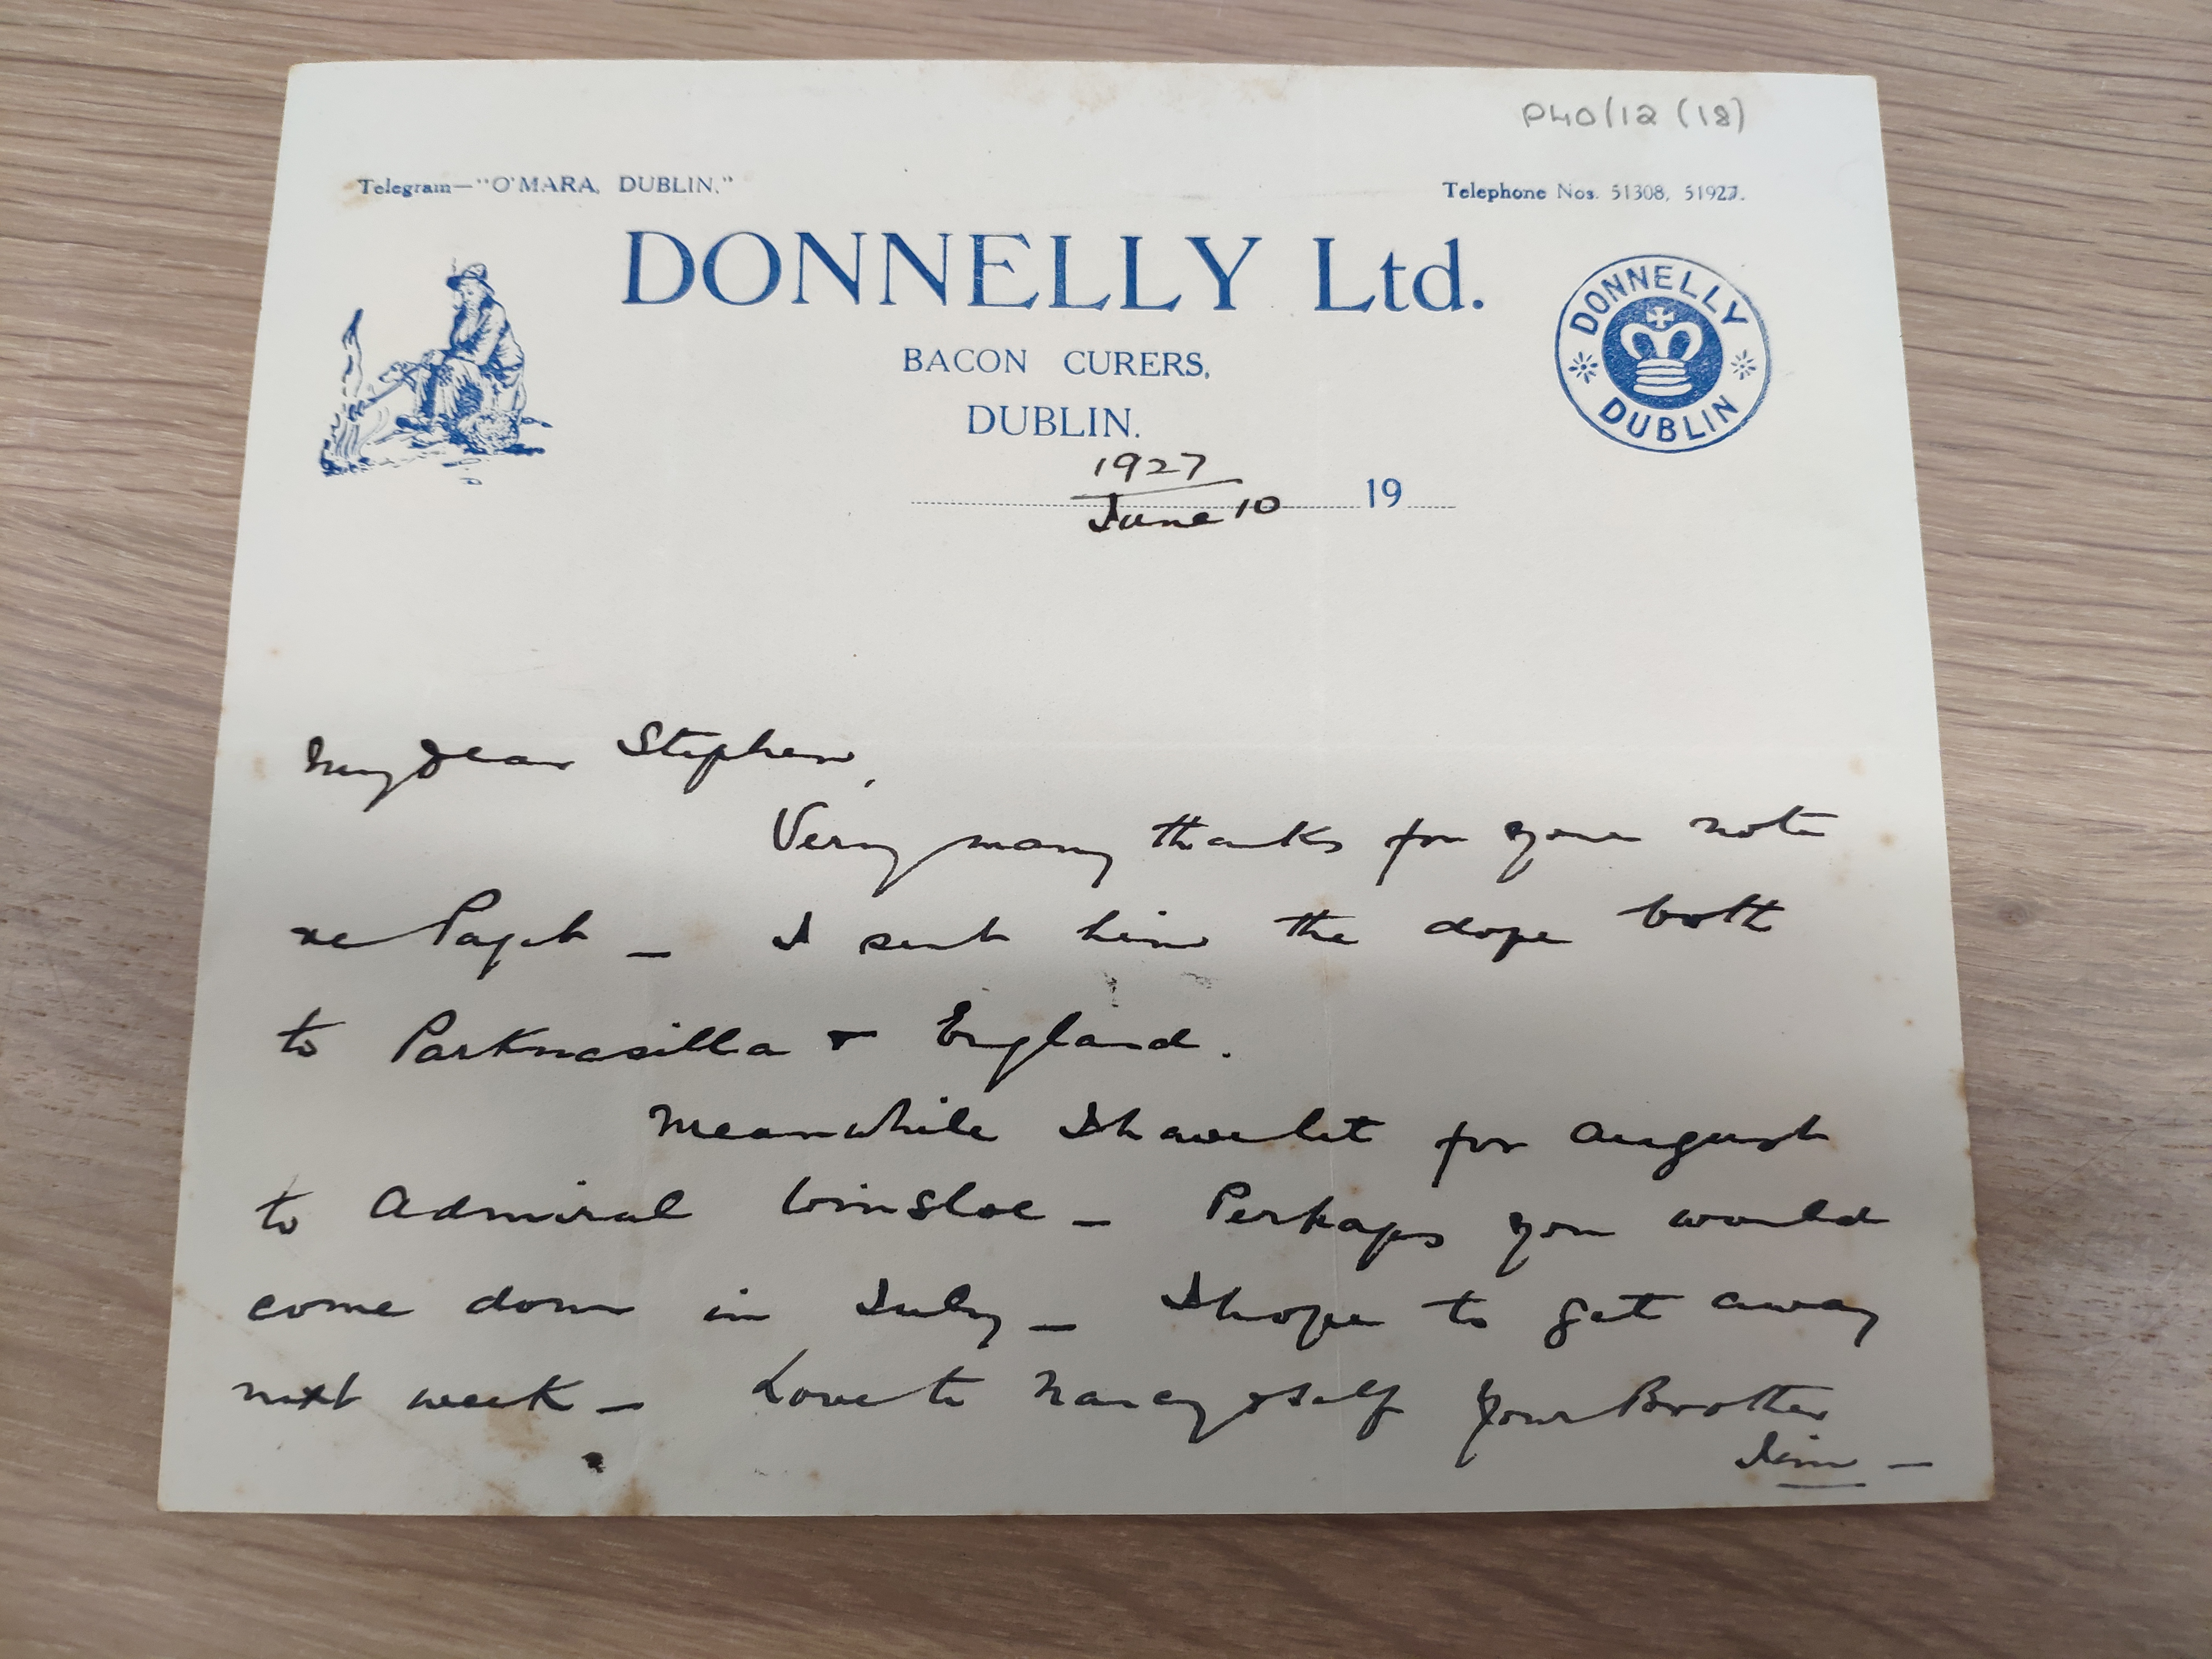 P40/12 (18)
Telegram—"O'MARA, DUBLIN."
Telephone Nos. 51308, 51927.
DONNELLY Ltd.
BACON CURERS,
DUBLIN.
DONNELLY
DUBLIN
1927
June 10 19
My dear Stephen,
Very many thanks for your note
re — I sent him the dope both
to Parknasilla & England.
Meanwhile I have let for August
to Admiral Winsloe — Perhaps you would
come down in July — I hope to get away
next week — Love to Nancy & self Your Brother
Jim —